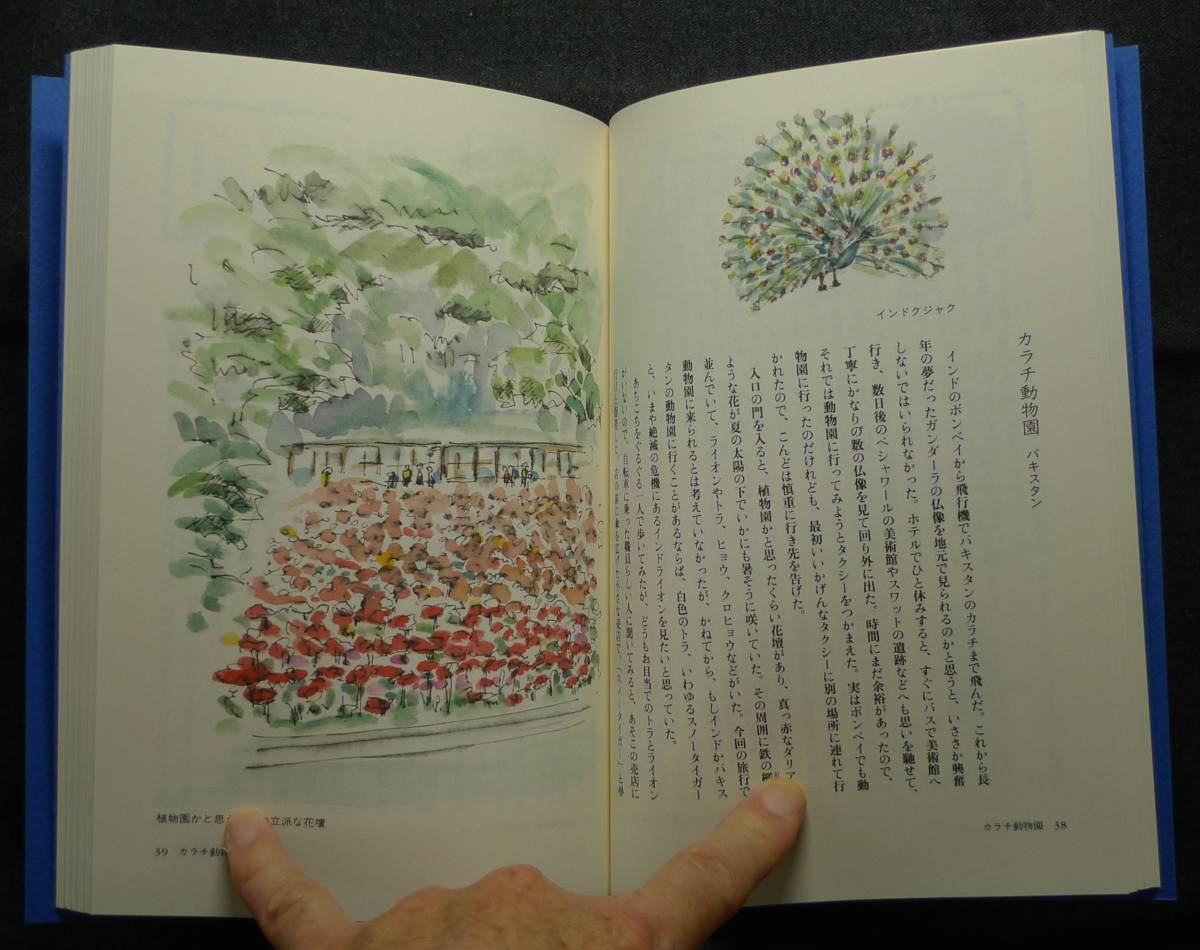 インドクジャク
カラチ動物園 パキスタン
インドのボンベイから飛行機でパキスタンのカラチまで飛んだ。これから長
年の夢だったガンダーラの仏像を地元で見られるのかと思うと、いささか興奮
しないではいられなかった。ホテルでひと休みすると、すぐにバスで美術館へ
行き、数日後のペシャワールの美術館やスワットの遺跡などへも思いを馳せて、
丁寧にかなりの数の仏像を見て回り外に出た。時間にまだ余裕があったので、
それでは動物園に行ってみようとタクシーをつかまえた。実はボンベイでも動
物園に行ったのだけれども、最初いいかげんなタクシーに別の場所に連れて行
かれたので、こんどは慎重に行き先を告げた。
入口の門を入ると、植物園かと思ったくらい花壇があり、真っ赤なダリア
ような花が夏の太陽の下でいかにも暑そうに咲いていた。その周囲に鉄の檻
並んでいて、ライオンやトラ、ヒョウ、クロヒョウなどがいた。今回の旅行で
動物園に来られるとは考えていなかったが、かねてから、もしインドかパキス
タンの動物園に行くことがあるならば、白色のトラ、いわゆるスノータイガー
と、いまや絶滅の危機にあるインドライオンを見たいと思っていた。
あちこちをぐるぐる一人で歩いてみたが、どうもお目当てのトラとライオン
がいないので、自転車に乗った職員らしい人に聞いてみると、あそこの売店に
「スノータイガー」と尋
カラチ動物園 38
植物園かと思 立派な花壇
39 カラチ動